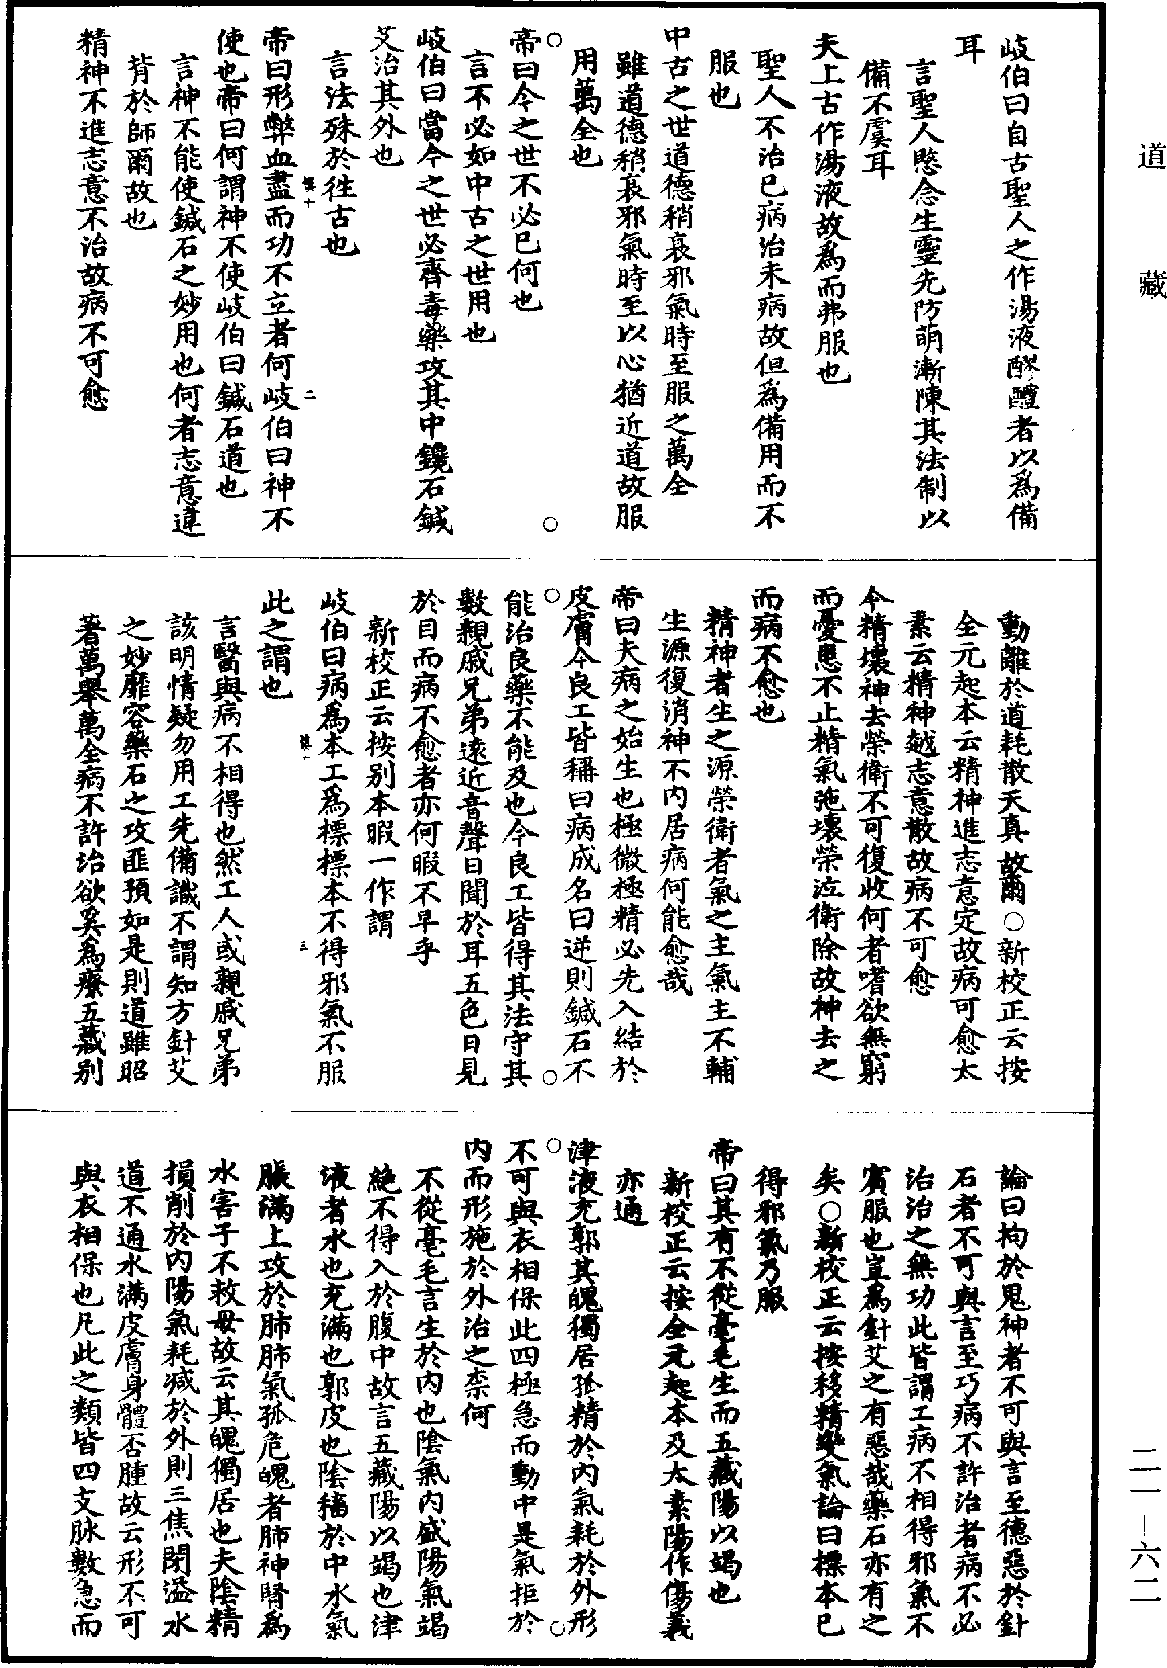 道藏
岐伯曰自古聖人之作湯液醪醴者以爲備
耳
言聖人愍念生靈先防萌漸陳其法制以
備不虞耳
夫上古作湯液故爲而弗服也
聖人不治已病治未病故但爲備用而不
服也
中古之世道德稍衰邪氣時至服之萬全
雖道德稍衰邪氣時至以心猶近道故服
用萬全也
帝曰今之世不必已何也
言不必如中古之世用也
岐伯曰當今之世必齊毒藥攻其中鑱石鍼
艾治其外也
言法殊於徃古也
帝曰形弊血盡而功不立者何岐伯曰神不
使也帝曰何謂神不使岐伯曰鍼石道也
言神不能使鍼石之妙用也何者志意違
背於師爾故也
精神不進志意不治故病不可愈
動離於道耗散天真故爾○新校正云按
全元起本云精神進志意定故病可愈太
素云精神越志意散故病不可愈
今精壞神去榮衛不可復收何者嗜欲無窮
而憂患不止精氣弛壞榮泣衛除故神去之
而病不愈也
精神者生之源榮衛者氣之主氣主不輔
生源復消神不內居病何能愈哉
帝曰夫病之始生也極微極精必先入結於
皮膚今良工皆稱曰病成名曰逆則鍼石不
能治良藥不能及也今良工皆得其法守其
數親戚兄弟遠近音聲日聞於耳五色日見
於目而病不愈者亦何暇不早乎
新校正云按别本暇一作謂
岐伯曰病爲本工爲標標本不得邪氣不服
此之謂也
言醫與病不相得也然工人或親戚兄弟
該明情疑勿用工先備識不謂知方針艾
之妙靡容藥石之攻匪預如是則道雖昭
著萬舉萬全病不許治欲奚爲療五藏别
論曰拘於鬼神者不可與言至德惡於針
石者不可與言至巧病不許治者病不必
治治之無功此皆謂工病不相得邪氣不
賓服也豈爲針艾之有惡哉藥石亦有之
矣○新校正云按移精變氣論曰標本已
得邪氣乃服
帝曰其有不從毫毛生而五藏陽以竭也
新校正云按全元起本及太素陽作傷義
亦通
津液充郭其魄獨居孤精於內氣耗於外形
不可與衣相保此四極急而動中是氣拒於
內而形施於外治之柰何
不從毫毛言生於內也陰氣內盛陽氣竭
絶不得入於腹中故言五藏陽以竭也津
液者水也充滿也郭皮也陰稸於中水氣
脹滿上攻於肺肺氣孤危魄者肺神腎爲
水害子不救母故云其魄獨居也夫陰精
損削於內陽氣耗減於外則三焦閉溢水
道不通水滿皮膚身體否腫故云形不可
與衣相保也凡此之類皆四支脉數急而
二一—六二